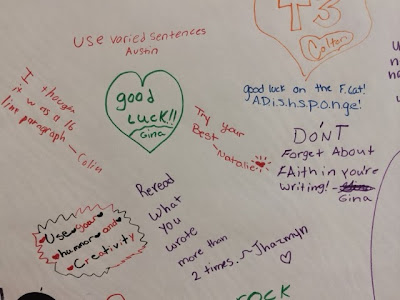 Use varied sentences
Austin
T3
Colton
good luck on the F.Cat!
A.D.i.s.h.s.p.o.n.g.e!
I thought
it was a 16
line paragraph
- Colin
good
LUCK!!
Gina
Try your
Best
-Natalie!
DON'T
Forget About
FAith in You're
writing! -
Gina
Use gour
humor and
Creativity
Reread
what
you
wrote
more than
2 times. ~ Jhazmyn